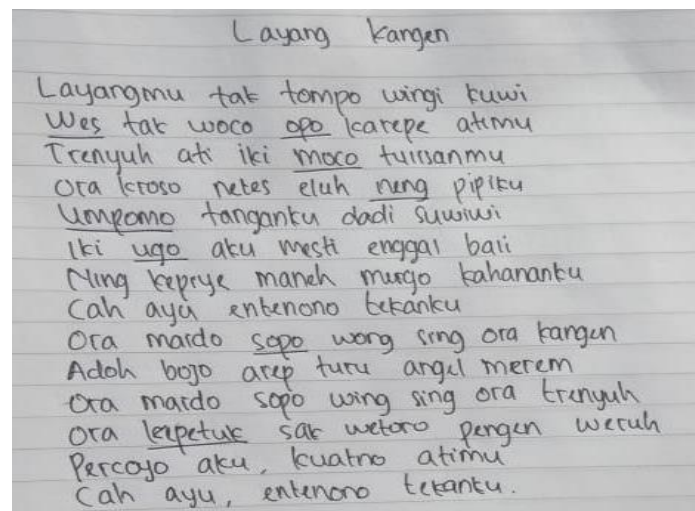 Layang Kangen
Layangmu tak tompo wingi kuwi
Wes tak woco opo karepe atimu
Trenyuh ati iki moco tulisanmu
Ora kroso netes eluh neng pipiku
Umpomo tanganku dadi suwiwi
Iki ugo aku mesti enggal bali
Ning kepriye maneh murgo kahananku
Cah ayu entenono tekanku
Ora maido sopo wong sing ora kangen
Adoh bojo arep turu angel merem
Ora maido sopo wing sing ora trenyuh
Ora kepetuk sak wetoro pengen weruh
Percoyo aku, kuatno atimu
Cah ayu, entenono tekanku.